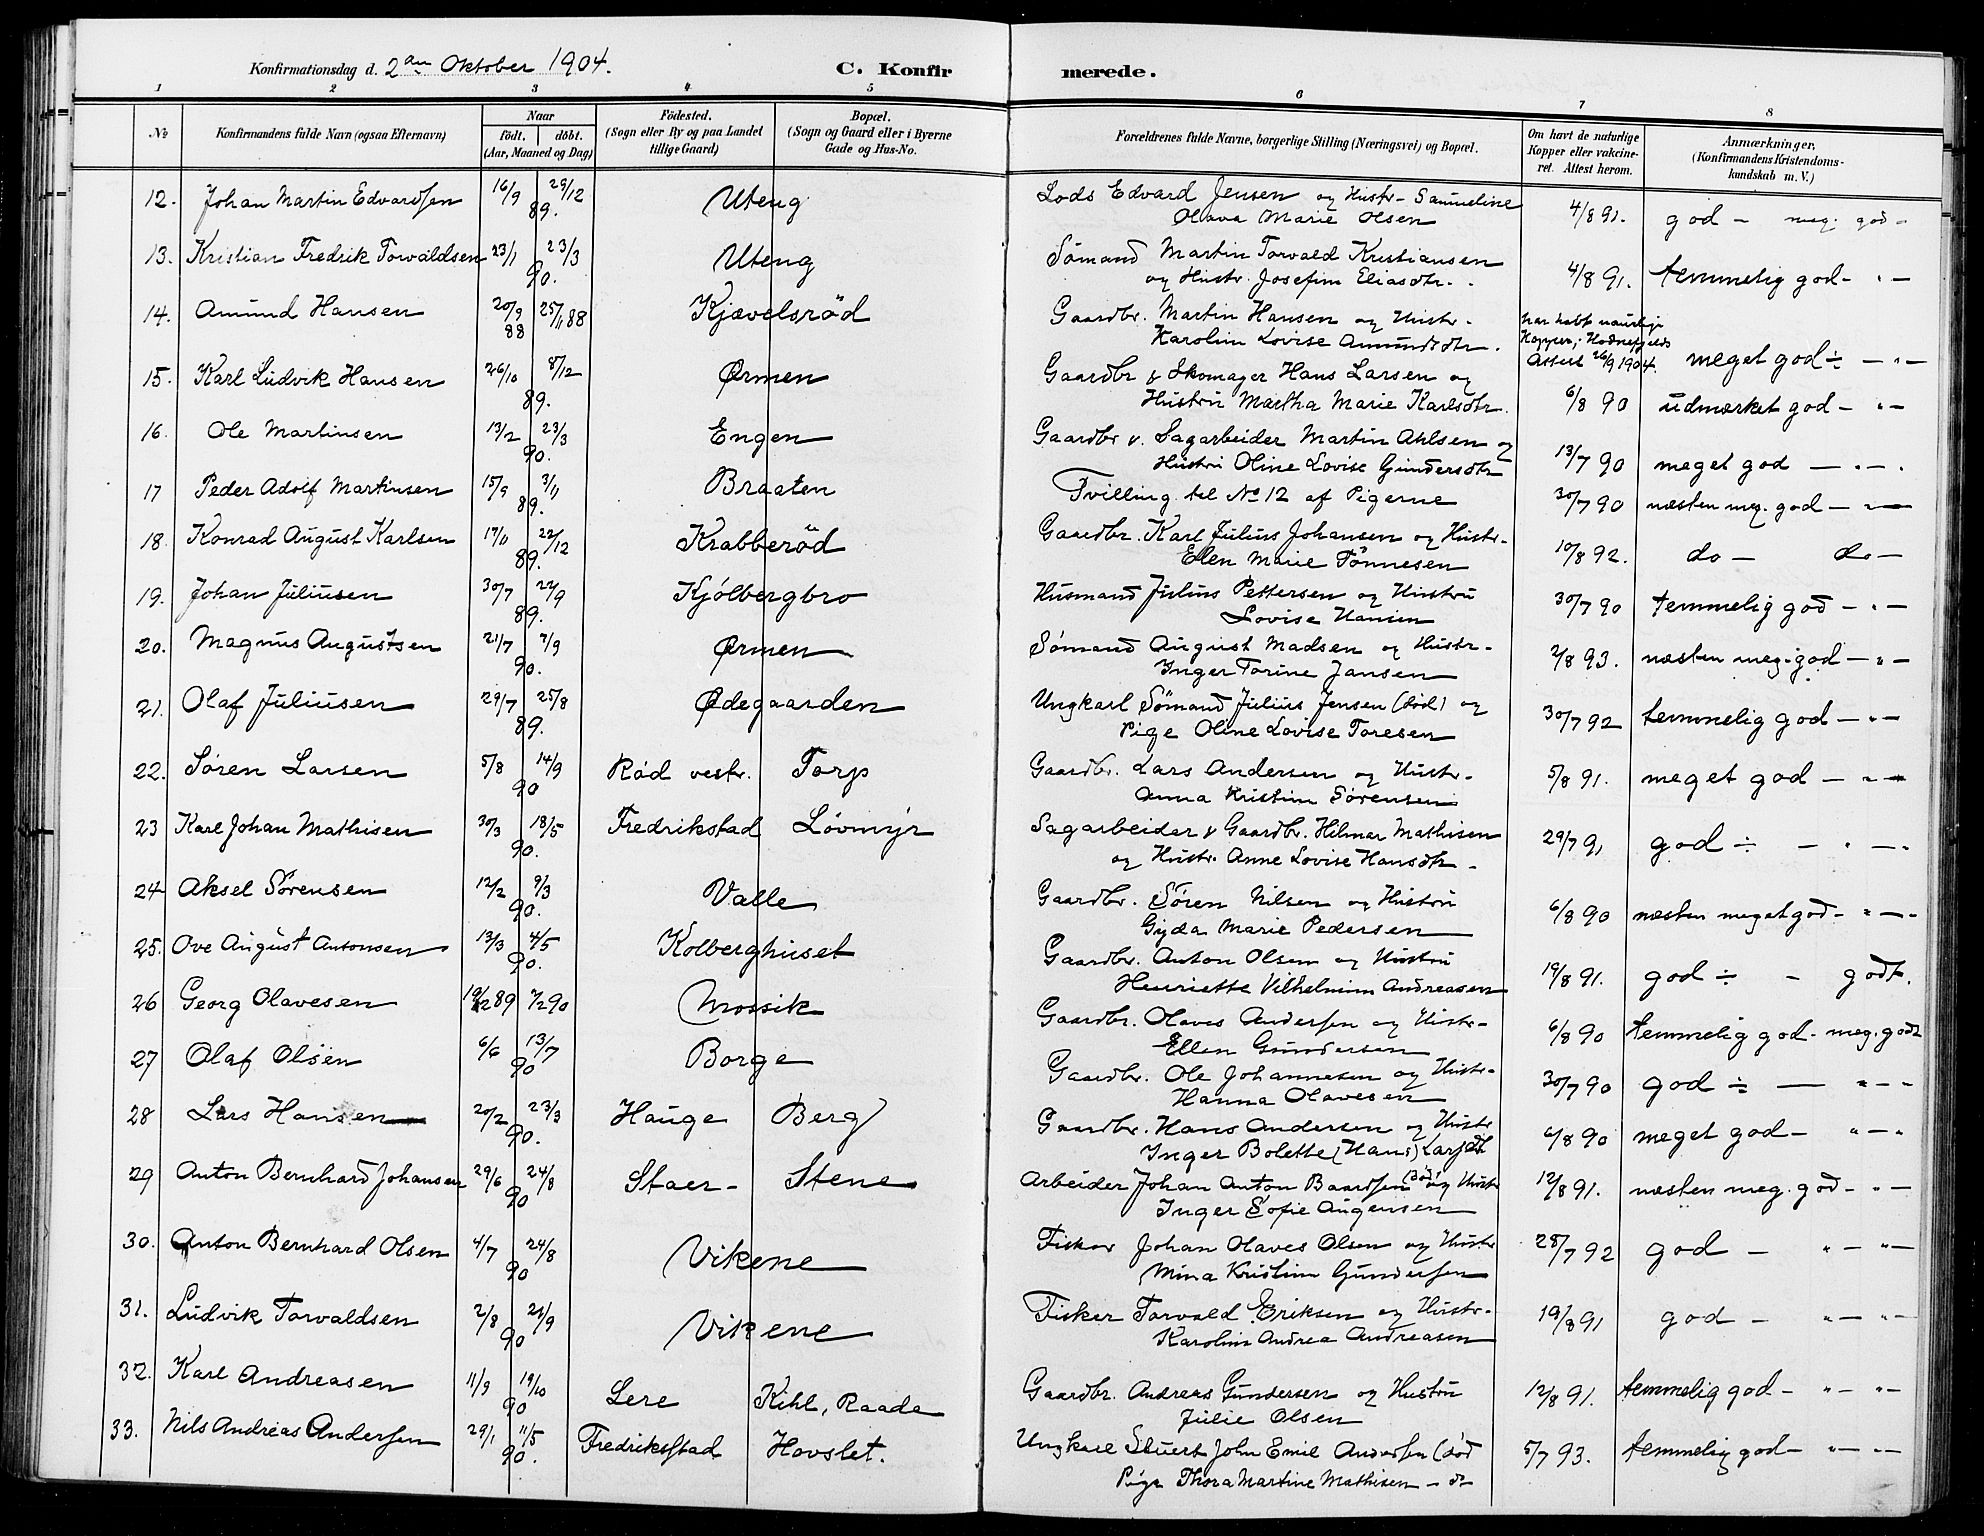 Konfirmationsdag d. 2den Oktober 1904.
C. Konfirmerede.
1 2 3 4 5 6 7 8
No Konfirmandens fulde Navn (ogsaa Efternavn) Naar födt. döbt. (Aar, Maaned og Dag) Födested. (Sogn eller By og paa Landet tillige Gaard) Bopæl. (Sogn og Gaard eller i Byerne Gade og Hus-No. Forældrenes fulde Navne, borgerlige Stilling (Næringsvei) og Bopæl. Om havt de naturlige Kopper eller vakcineret. Attest herom. Anmærkninger. (Konfirmandens Kristendomskundskab m. V.)
12. Johan Martin Edvardsen 16/9 29/12 89. Uteng Lods Edvard Jensen og Hustr. Sammeline 4/8 91. god - meg. god -
Olava Marie Olsen
13. Kristian Fredrik Torvaldsen 23/1 23/3 90. Uteng Sömand Martin Torvald Kristiansen 4/8 91. temmelig god - " -
og Hustr. Josefine Eliasdtr.
14. Amund Hansen 20/9 88 25/11 88 Kjævelsröd Gaardbr. Martin Hansen og Hustr. har havt naturlige Kopper, Attest 26/9 1904. meget god ÷ - " -
Karolin Lovise Amundsdtr.
15. Karl Ludvik Hansen 26/10 8/12 89. Ørmen Gaardbr & Skomager Hans Larsen og 6/8 90 udmærket god - " -
Hustru Martha Marie Karlsdtr.
16. Ole Martinsen 13/2 23/3 90. Engen Gaardbr & Sagarbeider Martin Ahlsen og 13/7 90 meget god - " -
Hustru Oline Lovise Gundersdtr
17 Peder Adolf Martinsen 15/9 3/11 89. Braaten Tvilling til No 12 af Pigerne 30/7 90 næsten meg. god - " -
18. Konrad August Karlsen 17/11 22/12 89. Krabberöd Gaardbr. Karl Julius Johansen og Hustr. 10/8 92. do - do -
Ellen Marie Tönnesen
19. Johan Juliusen 30/7 22/9 89. Kjölbergbro Husmand Julius Pettersen og Hustru 30/7 90 temmelig god - " -
Lovise Hansen
20. Magnus Augustsen 21/7 7/9 90. Ørmen Sömand August Madsen og Hustr. 2/8 93. næsten meg. god - " -
Inger Torine Jansen
21. Olaf Juliusen 29/7 25/8 89. Ødegaarden Ungkarl Sömand Julius Jensen (död) og 30/7 92 temmelig god - " -
Pige Oline Lovise Toresen
22. Sören Larsen 5/8 14/9 90 Röd vestr. Torp Gaardbr. Lars Andersen og Hustr. 5/8 91. meget god - " -
Anna Kristine Sörensen
23 Karl Johan Mathisen 30/3 18/5 90. Fredrikstad Lövmyr Sagarbeider & Gaardbr. Hilmar Mathisen 29/7 91 god ÷ - " -
og Hustr. Anne Lovise Hansdtr.
24 Aksel Sörensen 12/2 9/3 90. Valle Gaardbr. Sören Nilsen og Hustru 6/8 90 næsten meget god - " -
Gyda Marie Pedersen
25. Ove August Antonsen 13/3 4/5 90. Kolberghuset Gaardbr. Anton Olsen og Hustru 19/8 91. god ÷ - godt.
Henriette Vilhelmine Andreasen
26 Georg Olavesen 19/12 89 2/2 90 Mossik Gaardbr. Olaves Andersen og Hustr. 6/8 90 temmelig god - meg. godt
Ellen Gundersen
27 Olaf Olsen 6/6 13/7 90 Borge Gaardbr. Ole Johannesen og Hustr. 30/7 90 god ÷ - " -
Hanna Olavesen
28 Lars Hansen 20/2 23/3 90. Hauge Berg Gaardbr. Hans Andersen og Hustr 6/8 90 meget god - " -
Inger Bolette (Hans) Larsdtr
29 Anton Bernhard Johansen 29/6 24/8 90 Staer - Stene Arbeider Johan Anton Baardsen (död) og Hustr 12/8 91. næsten meg. god - " -
Inger Sofie Augensen
30. Anton Bernhard Olsen 4/7 24/8 90 Vikene Fisker Johan Olaves Olsen og Hustr 28/7 92 god - " - " -
Mina Kristine Gundersen
31. Ludvik Torvaldsen 2/8 21/9 90 Vikene Fisker Torvald Eriksen og Hustr. 19/8 91 god - " - " -
Karolin Andrea Andreasen
32. Karl Andreasen 11/9 19/10 90 Lere Kihl, Raade Gaardbr. Andreas Gundersen og Hustru 12/8 91. temmelig god - " - " -
Julie Olsen
33. Nils Andreas Andersen 29/1 11/5 90. Fredriksstad Hovslet. Ungkarl Stuert John Emil Andersen (död 5/7 93. temmelig god - " - " -
Pige Thora Martine Mathisen - do